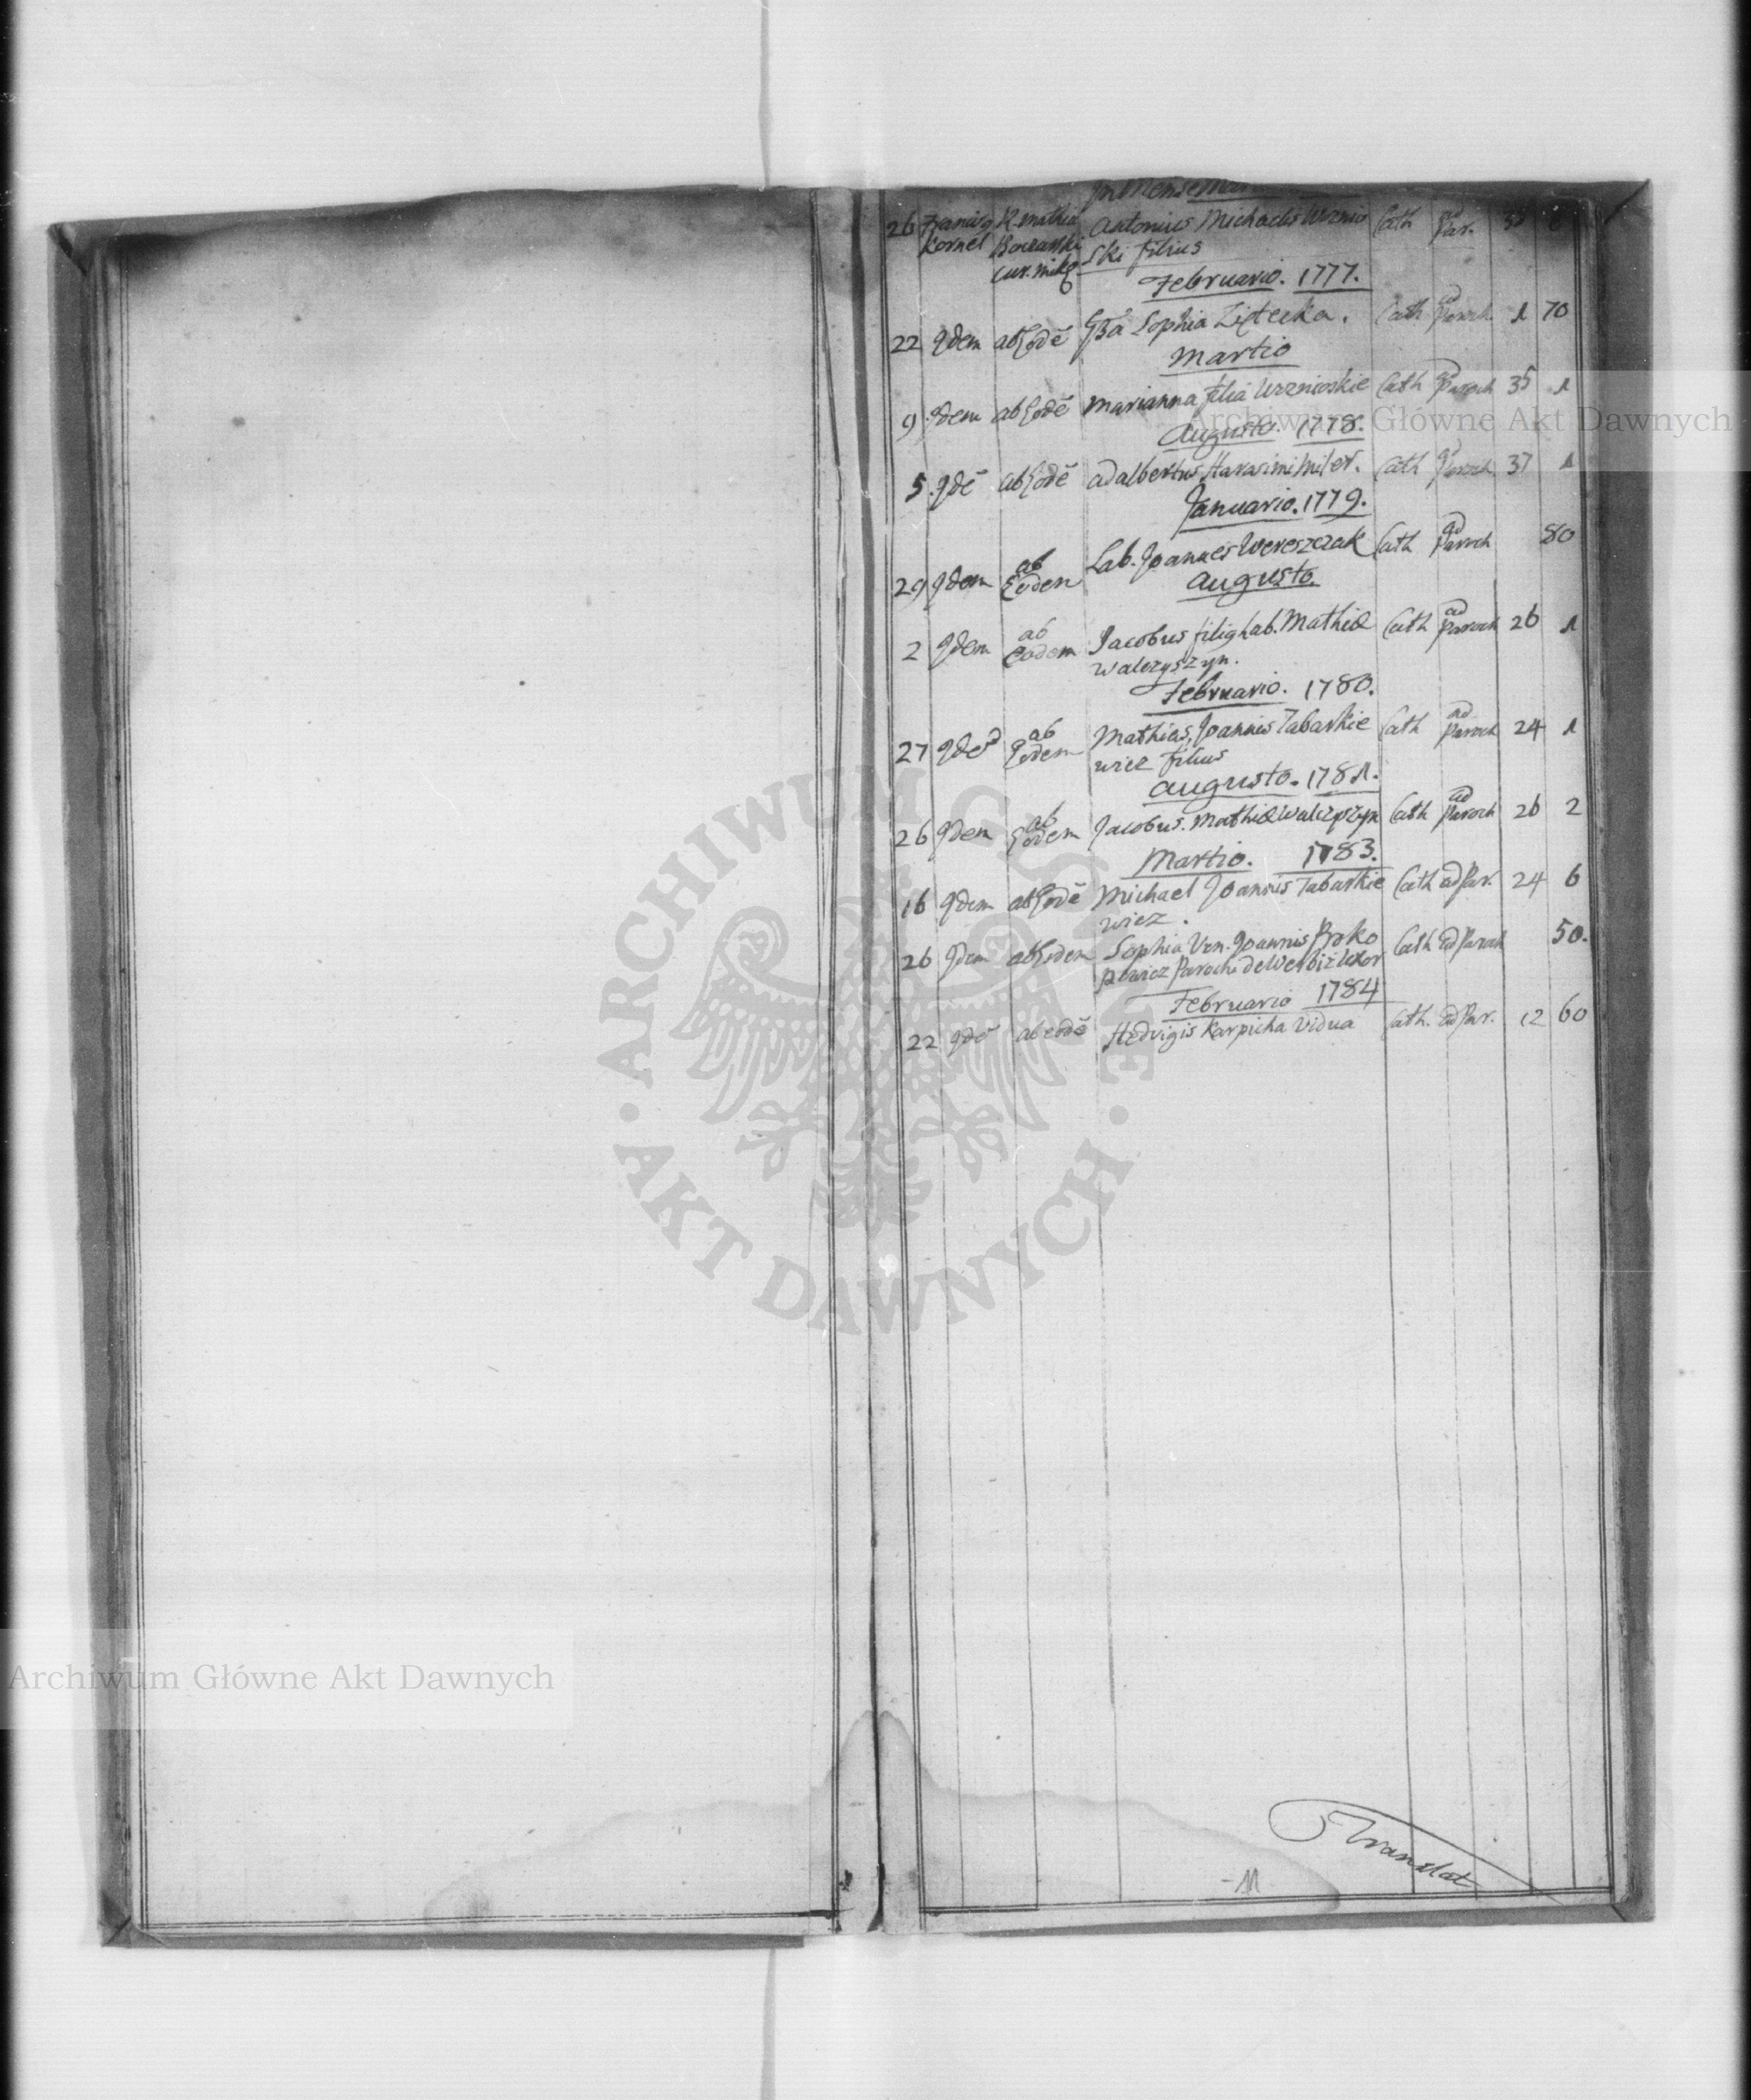 In Mense Mar
26 Francisg R. Mathia Antonius Michaelis Wrznio Cath ad 35 6
Kornel Bonzarski ski filius Par.
Cur. mikg
Februario. 1777.
22 Idem ab Eodē Gsa Sophia Ziętecka. Cath ad Paroch 1 70
Martio
9 Idem ab Eodē Marianna filia Wrznioskie Cath ad Paroch 35 1
Augusto. 1778.
5 Idē ab Eodē Adalbertus Harasimi Miler. Cath ad Paroch 37 1
Januario. 1779.
29 Idem ab Eodem Lab. Joannes Wereszczak Cath ad Paroch 80
Augusto.
2 Idem ab Eodem Jacobus filig Lab. Mathiæ Cath ad Paroch 26 1
Walczyszyn.
Februario. 1780.
27 Idē ab Eodem Mathias, Joannis Tabarkie Cath ad Paroch 24 1
wicz filius
Augusto. 1781.
26 Idem ab Eodem Jacobus. Mathiæ Walczyszyn Cath ad Paroch 26 2
Martio. 1783.
16 Idem ab Eodē Michael Joannis Tabarkie Cath ad Par. 24 6
wicz.
26 Idem ab Eodem Sophia Vrn. Joannis Proko Cath ad Paroch 50.
powicz Parochi de Werbiż Uxor
Februario 1784
22 Idē ab eodē Hedvigis Karpicha Vidua Cath. ad Par. 12 60
Translat
11
ARCHIWUM GŁÓWNE
AKT DAWNYCH
Archiwum Główne Akt Dawnych
Archiwum Główne Akt Dawnych